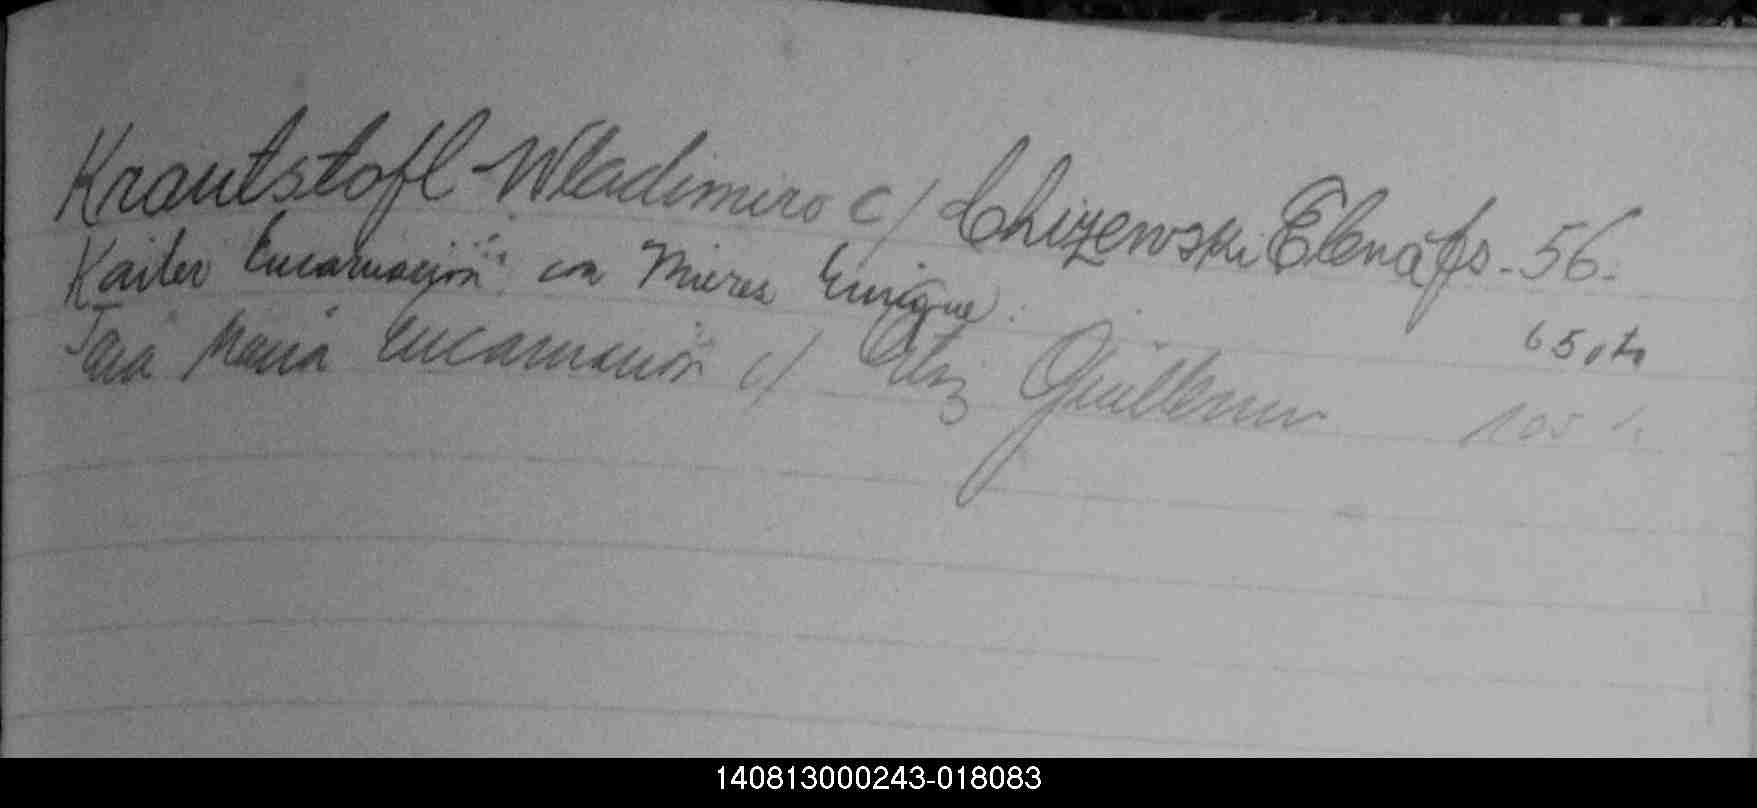 Krautstofl - Wladimiro c/ Chizewski Elena fs. 56.
Kailer Encarnación con Mieres Enrique.
65 vto
María Encarnación c/ Guillermo 105
140813000243-018083